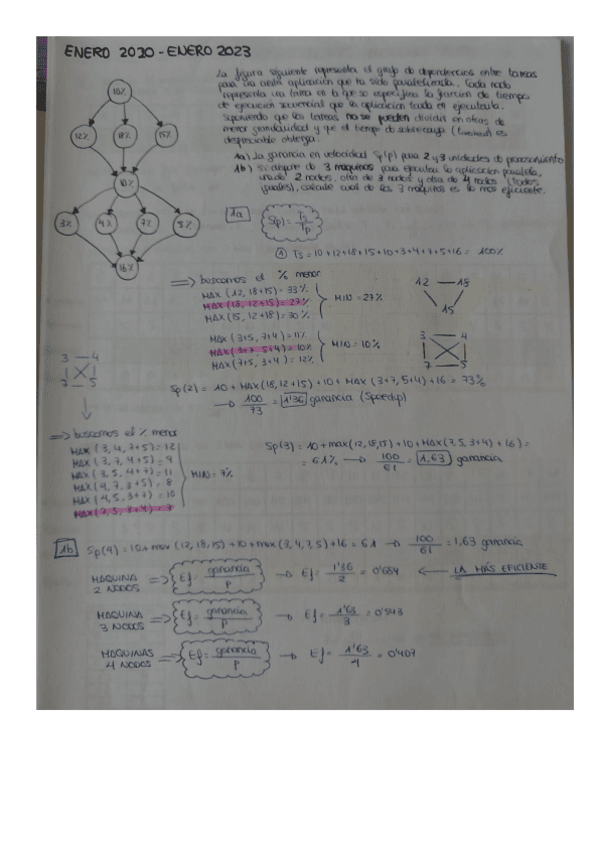 ENERO 2020 - ENERO 2023
La figura siguiente representa el grafo de dependencias entre tareas
para una cierta aplicación que ha sido paralelizada. Cada nodo
representa una tarea en la que se especifica la fracción de tiempo
de ejecución secuencial que la aplicación tarda en ejecutarla.
Suponiendo que las tareas no se pueden dividir en otras de
menor granularidad y que el tiempo de sobrecarga (Toverhead) es
despreciable obtenga:
1a) La ganancia en velocidad Sp(p) para 2 y 3 unidades de procesamiento
1b) Si dispone de 3 maquinas para ejecutar la aplicación paralela,
una de 2 nodos, otra de 3 nodos y otra de 4 nodos (todos
iguales), calcule cual de las 3 maquinas es la más eficiente.
10%
12% 18% 15%
10%
3% 4% 7% 5%
16%
1a S(p) = Ts / Tp
① Ts = 10+12+18+15+10+3+4+7+5+16 = 100%
=> buscamos el % menor
MAX (12, 18+15) = 33%
MAX (18, 12+15) = 27%
MAX (15, 12+18) = 30%
MIN = 27%
12 — 18
15
MAX (3+5, 7+4) = 11%
MAX (3+7, 5+4) = 10%
MAX (7+5, 3+4) = 12%
MIN = 10%
3 — 4
7 — 5
Sp(2) = 10 + MAX(18, 12+15) + 10 + MAX (3+7, 5+4) + 16 = 73%
→ 100/73 = 1'36 ganancia (Speedup)
3 — 4
7 5
=> buscamos el % menor
MAX (3, 4, 7+5) = 12
MAX (3, 7, 4+5) = 9
MAX (3, 5, 4+7) = 11
MAX (4, 7, 3+5) = 8
MAX (4, 5, 3+7) = 10
MAX (7, 5, 3+4) = 7
MIN = 7%
Sp(3) = 10 + max(12, 18, 15) + 10 + MAX(7, 5, 3+4) + 16 =
= 61% → 100/61 = 1,63 ganancia
1b Sp(4) = 10 + max (12, 18, 15) + 10 + max (3, 4, 7, 5) + 16 = 61 → 100/61 = 1,63 ganancia
MAQUINA 2 NODOS => Ef = ganancia / P → Ef = 1'36 / 2 = 0'684 ← LA MÁS EFICIENTE
MAQUINA 3 NODOS => Ef = ganancia / P → Ef = 1'63 / 3 = 0'543
MAQUINAS 4 NODOS => Ef = ganancia / P → Ef = 1'63 / 4 = 0'407